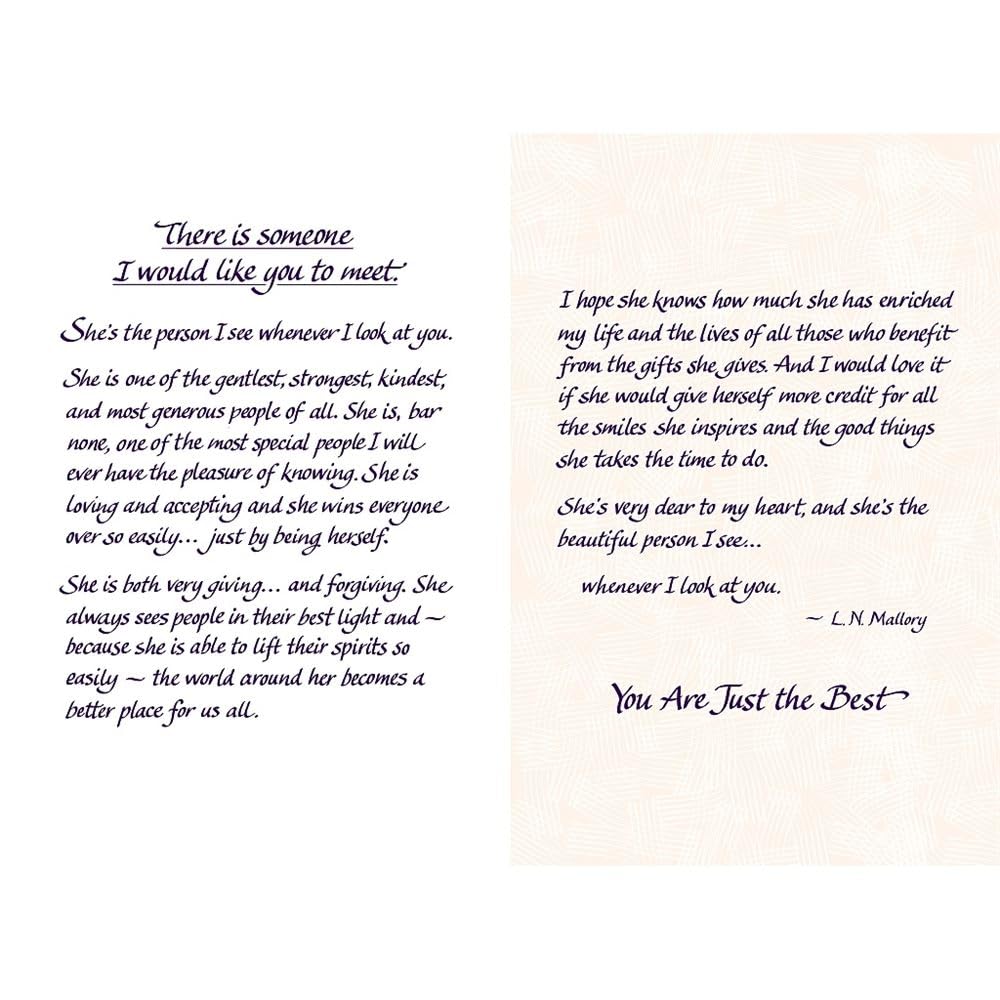 There is someone
I would like you to meet.
She's the person I see whenever I look at you.
She is one of the gentlest, strongest, kindest,
and most generous people of all. She is, bar
none, one of the most special people I will
ever have the pleasure of knowing. She is
loving and accepting and she wins everyone
over so easily... just by being herself.
She is both very giving... and forgiving. She
always sees people in their best light and ~
because she is able to lift their spirits so
easily ~ the world around her becomes a
better place for us all.
I hope she knows how much she has enriched
my life and the lives of all those who benefit
from the gifts she gives. And I would love it
if she would give herself more credit for all
the smiles she inspires and the good things
she takes the time to do.
She's very dear to my heart, and she's the
beautiful person I see...
whenever I look at you.
~ L. N. Mallory
You Are Just the Best